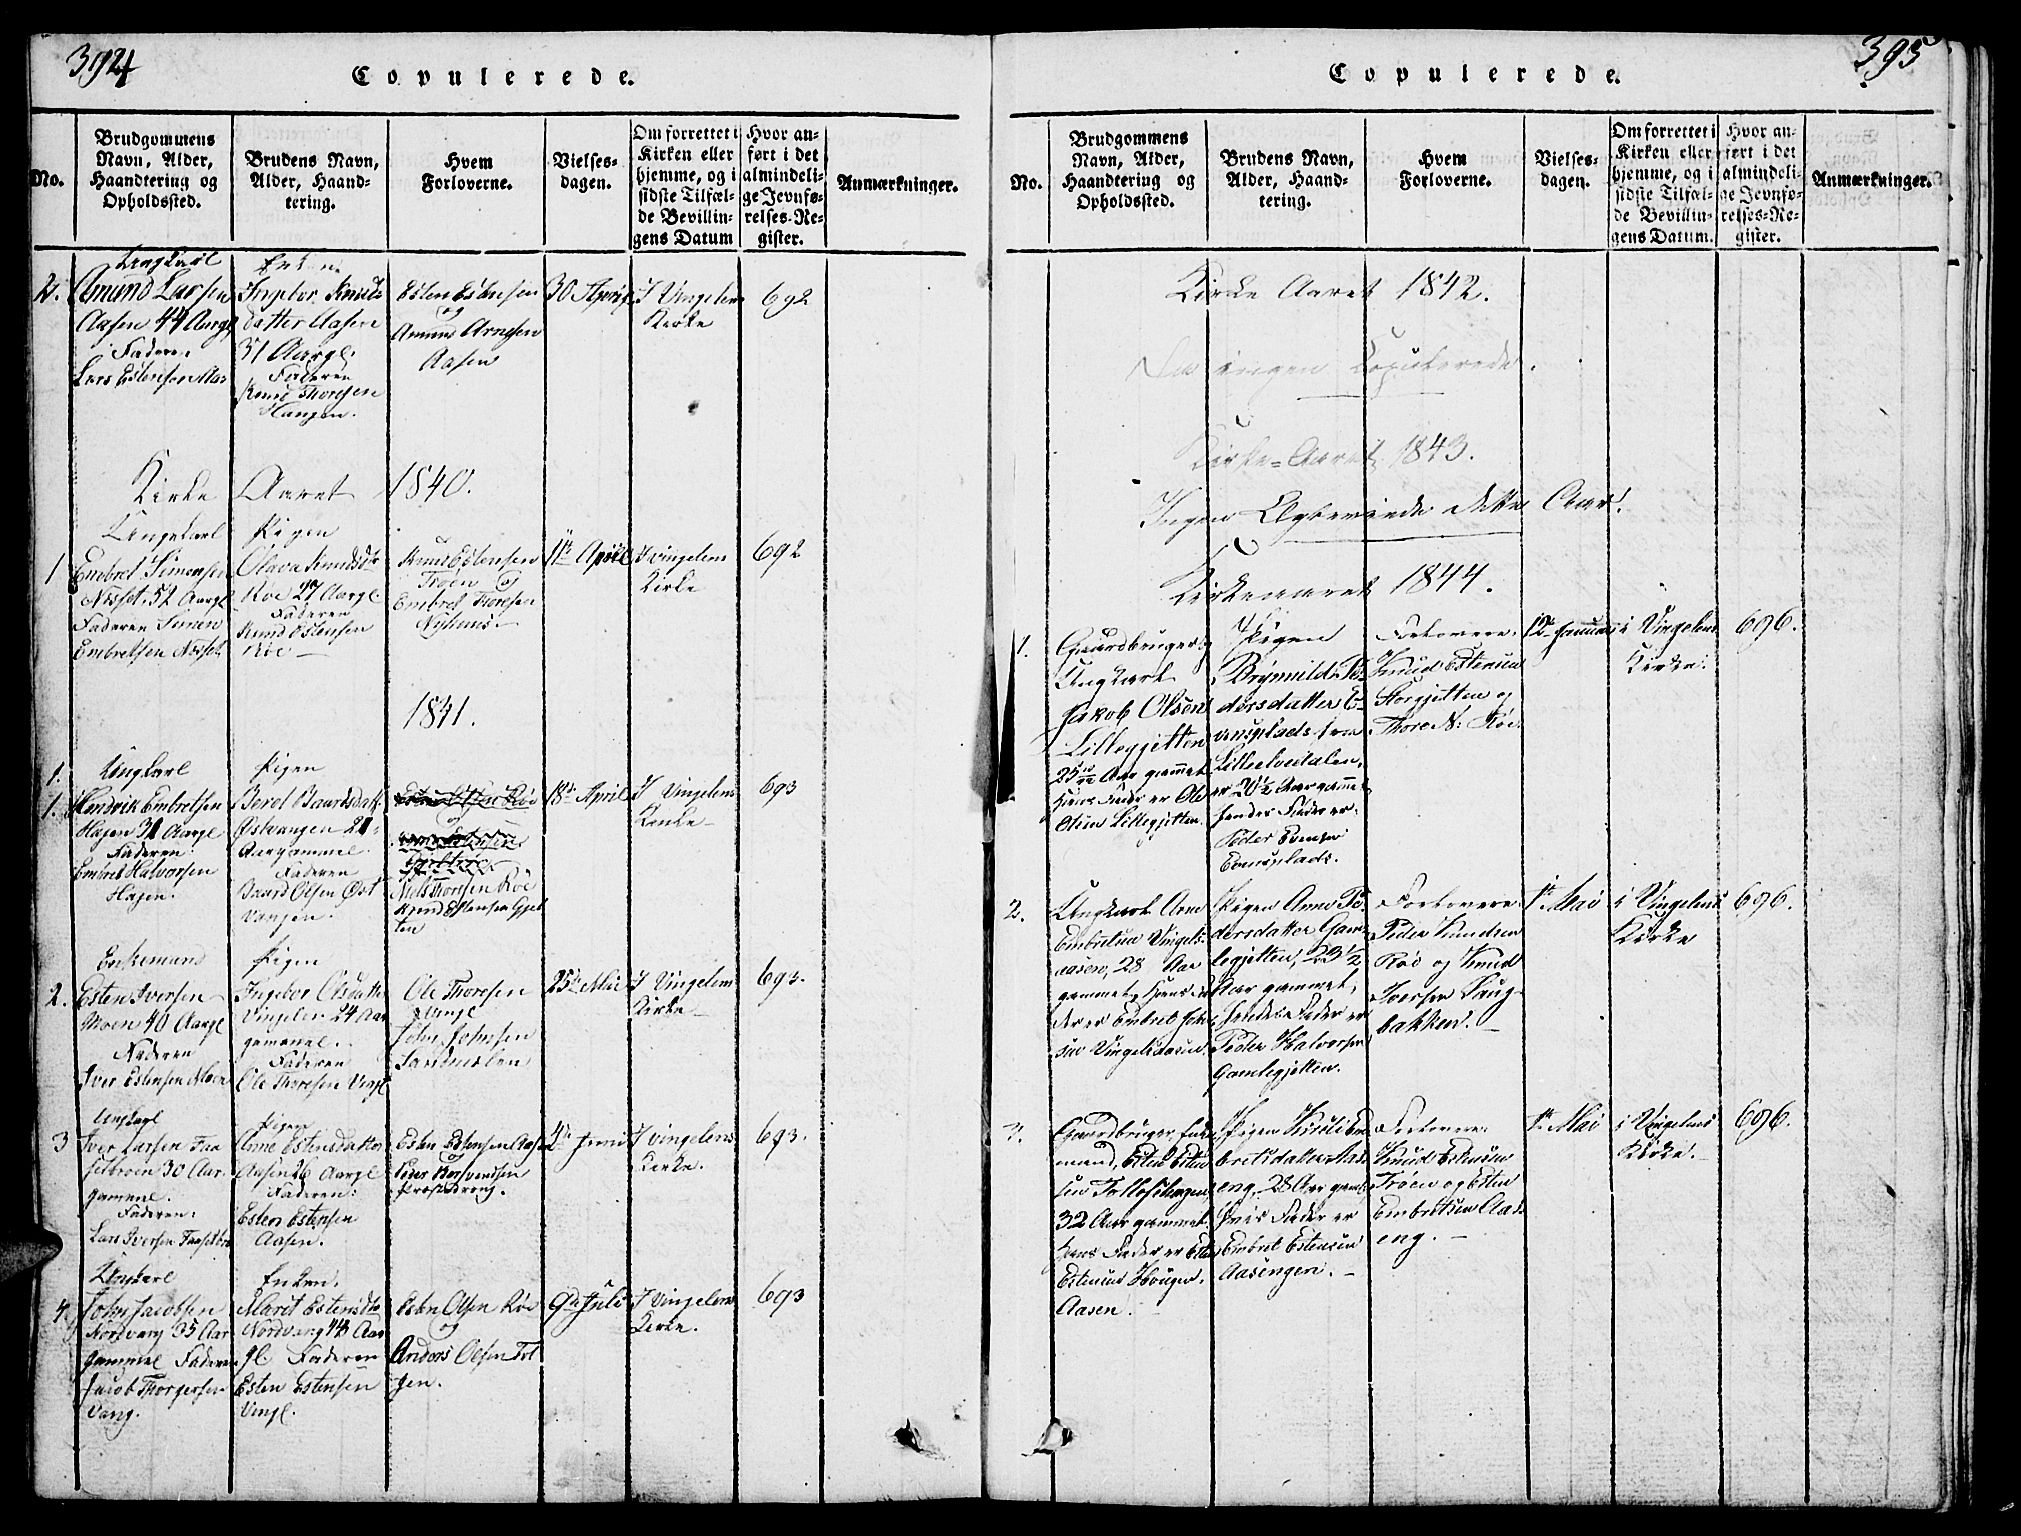 394
Copulerede.
No.
Brudgommens
Navn, Alder,
Haandtering og
Opholdssted.
Brudens Navn,
Alder, Haand-
tering.
Hvem
Forloverne.
Vielses-
dagen.
Om forrettet i
Kirken eller
hjemme, og i
sidste Tilfæl-
de Bevillin-
gens Datum
Hvor an-
ført i det
almindeli-
ge Jevnfø-
relses-Re-
gister.
Anmærkninger.
2.
Ungkarl
Amund Larsen
Aasen 44 Aargl
Faderen
Lars Estensen
Enken
Ingebor Knuds
datter Aasen
51 Aargl.
Faderen
Knud Thoresen
Haugen.
Esten Estensen
og
Amund Arnesen
Aasen
30 April
I Vingelens
Kirke
692
Kirke Aaret 1840.
1
Ungkarl
Embret Simensen
Nisset, 52 Aargl
Faderen Simen
Embretsen Nisset
Pigen
Olava Knudsdtr
Röe 27 Aargl
Faderen
Knud Estensen
Röe
Knud Estensen
Tröen og
Embret Thoresen
Nyhuus
11te April
I Vingelens
Kirke
692
1841.
1.
1.
Ungkarl
Hendrik Embretsen
Hagen 31 Aargl
Faderen:
Embret Halvorsen
Hagen.
Pigen
Berot Baardsdatt
Østvangen 21
Aar gammel.
Faderen
Baard Olsen Øst
vangen.
Niels Thoresen Röe
Knud Estensen Gjet
ten
18de April
I Vingelens
Kirke
693
2.
Enkemand
Esten Iversen
Moen 40 Aargl
Faderen
Iver Estensen Moen
Pigen
Ingebor Olsdatter
Vingelen 24 Aar
gammel.
Faderen
Ole Thoresen Vingl
Ole Thoresen
Vingl
John Johnsen
25de Mai
I Vingelens
Kirke
693.
3
Ungkarl
Iver Larsen Faa
setbroen 30 Aar
gammel.
Faderen:
Lars Iversen Faasetbro
Pigen
Anne Estensdatter
Aasen 26 Aargl
Faderen:
Esten Estensen
Aasen.
Esten Estensen Aasen
og
Peder
Præstedreng.
I Vingelens
Kirke.
693.
4.
Ungkarl
John Jacobsen
Nordvang 35 Aar
gammel Faderen
Jacob Thorgersen
Vang.
Enken.
Marit Estensdtr
Nordvang 44 Aar
gl. Faderen
Esten Estensen
Vingl.
Esten Olsen Röe
og
Anders Olsen Tol
gen.
9de Juli
I Vingelens
Kirke.
693
395
Copulerede.
No.
Brudgommens
Navn, Alder,
Haandtering og
Opholdssted.
Brudens Navn,
Alder, Haand-
tering.
Hvem
Forloverne.
Vielses-
dagen.
Om forrettet i
Kirken eller
hjemme, og i
sidste Tilfæl-
de Bevillin-
gens Datum.
Hvor an-
ført i det
almindeli-
ge Jevnfø-
relses-Re-
gister.
Anmærkninger.
Kirke Aaret 1842.
ingen Copulerede.
Kirke-Aaret 1843.
Ingen Ægteviede dette Aar!
Kirkeaaret 1844.
1.
Gaardbruger og
Ungkarl
Jakob Olsen
Lillegjetten
25 Aar gammel
Hans Fader er Ole
Olsen Lillegjetten.
Pigen
Brynnild Pe-
dersdatter E-
vensplads fra
Lilleelvedalen,
er 20½ Aar gammel
hendes Fader er
Peder Evensen
Evensplads.
Forlovere:
Knud Estensen
Storgjetten og
Thore N: Röe.
12te Januar
i Vingelens
Kirke.
696.
2.
Ungkarl Arne
Embretsen Vingels-
aasen, 28 Aar
gammel, Hans Fa-
der er Embret
sen Vingelsaasen
Pigen Anne Pe-
dersdatter Gam-
legjetten, 23½
Aar gammel,
hendes Fader er
Peder Halvorsen
Gamlegjetten.
Forlovere
Peder Knudsen
Röe og Knud
Iversen Haug-
bakken.
1te Mai
i Vingelens
Kirke
696.
3.
Gaardbruger, Enke
mand, Esten Esten
sen
32 Aar gammel.
Hans Fader er Esten
Estensen Haugen,
Aasen.
Pigen Kirsti Em-
bretsdatter Aas-
eng, 28 Aar gaml
hvis Fader er
Embret Estensen
Aasengen.
Forlovere
Knud Estensen
Tröen og Esten
Embretsen Aas-
eng.
1te Mai
i Vingelens
Kirke.
696.